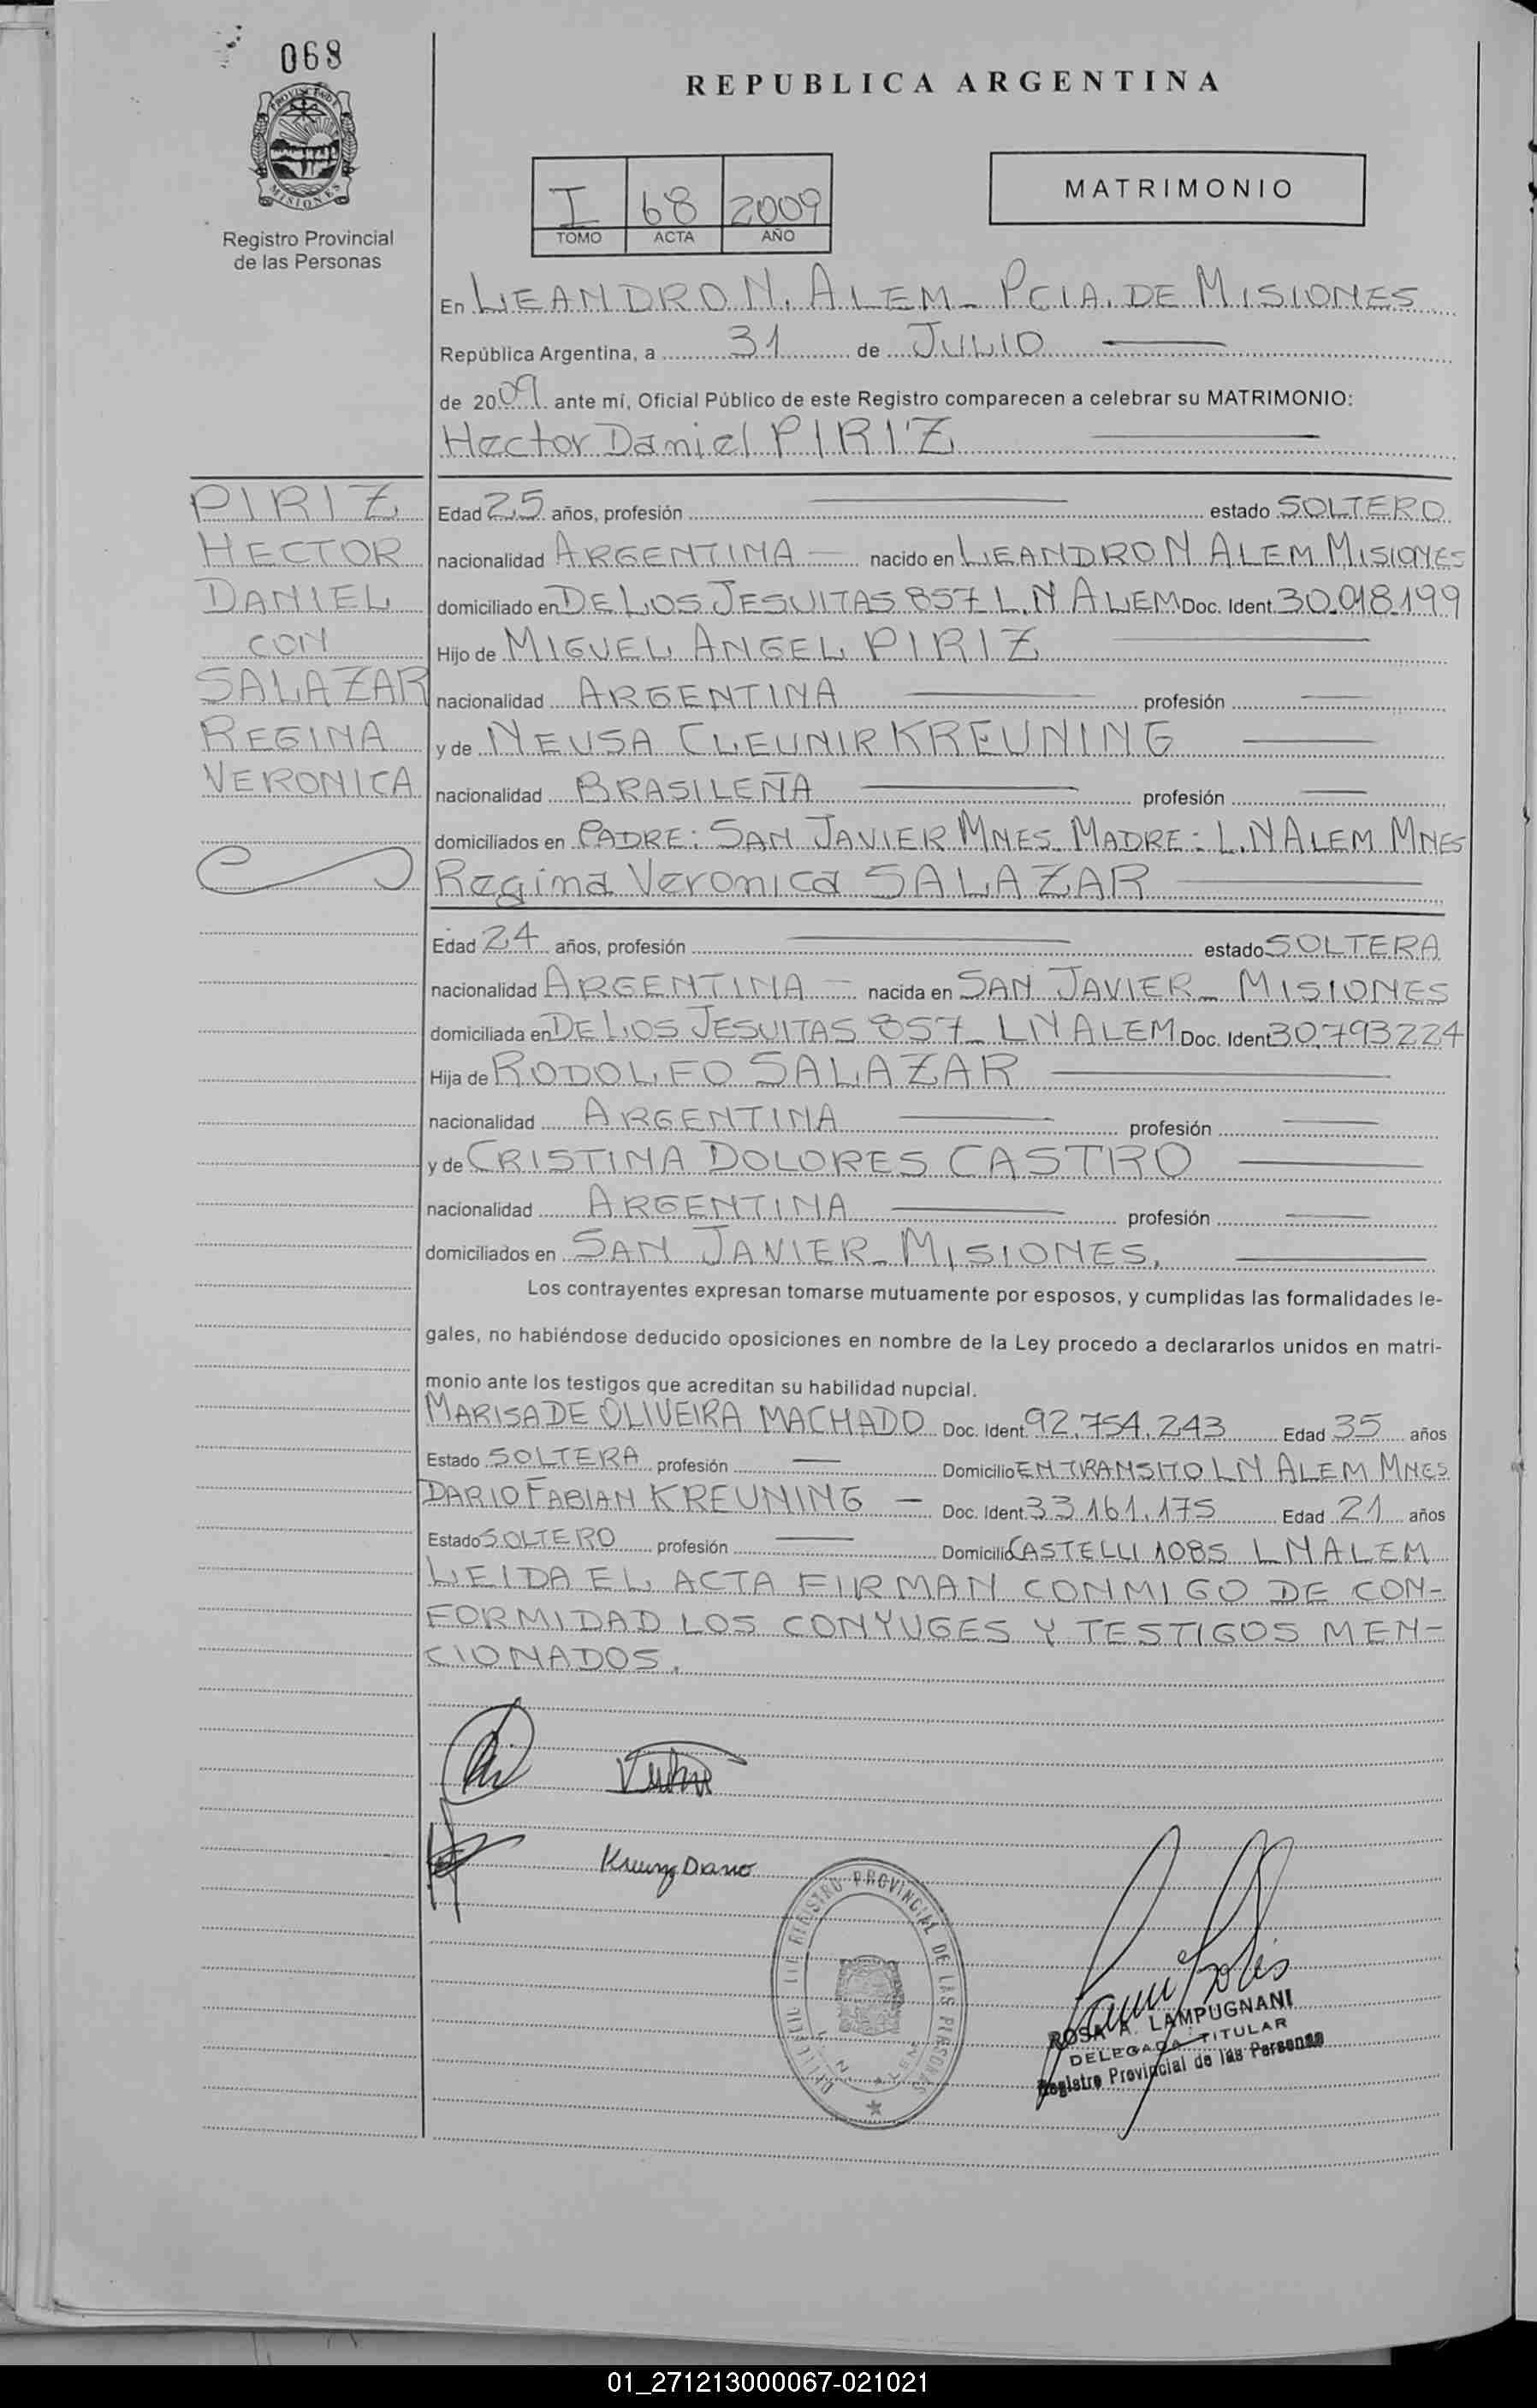 068
PROVINCIA DE
MISIONES
Registro Provincial
de las Personas
REPUBLICA ARGENTINA
I 68 2009
TOMO ACTA AÑO
MATRIMONIO
En LEANDRO N. ALEM - PCIA. DE MISIONES
República Argentina, a 31 de JULIO
de 2009 ante mí, Oficial Público de este Registro comparecen a celebrar su MATRIMONIO:
Hector Daniel PIRIZ
PIRIZ
HECTOR
DANIEL
CON
SALAZAR
REGINA
VERONICA
Edad 25 años, profesión estado SOLTERO
nacionalidad ARGENTINA nacido en LEANDRO N ALEM MISIONES
domiciliado en DE LOS JESUITAS 857 L.N ALEM Doc. Ident. 30.018.199
Hijo de MIGUEL ANGEL PIRIZ
nacionalidad ARGENTINA profesión
y de NEUSA CLEUNIR KREUNING
nacionalidad BRASILEÑA profesión
domiciliados en PADRE: SAN JAVIER MNES. MADRE: L.N ALEM MNES
Regina Veronica SALAZAR
Edad 24 años, profesión estado SOLTERA
nacionalidad ARGENTINA nacida en SAN JAVIER - MISIONES
domiciliada en DE LOS JESUITAS 857 - LN ALEM Doc. Ident 30.793224
Hija de RODOLFO SALAZAR
nacionalidad ARGENTINA profesión
y de CRISTINA DOLORES CASTRO
nacionalidad ARGENTINA profesión
domiciliados en SAN JAVIER - MISIONES.
Los contrayentes expresan tomarse mutuamente por esposos, y cumplidas las formalidades le-
gales, no habiéndose deducido oposiciones en nombre de la Ley procedo a declararlos unidos en matri-
monio ante los testigos que acreditan su habilidad nupcial.
MARISA DE OLIVEIRA MACHADO Doc. Ident. 92.754.243 Edad 35 años
Estado SOLTERA profesión Domicilio EN TRANSITO LN ALEM MNES
DARIO FABIAN KREUNING - Doc. Ident. 33.161.175 Edad 21 años
Estado SOLTERO profesión Domicilio CASTELLI 1085 LN ALEM
LEIDA EL ACTA FIRMAN CONMIGO DE CON-
FORMIDAD LOS CONYUGES Y TESTIGOS MEN-
CIONADOS.
REGISTRO PROVINCIAL DE LAS PERSONAS
L. N. ALEM
ROSA A. LAMPUGNANI
DELEGADA TITULAR
Registro Provincial de las Personas
01_271213000067-021021